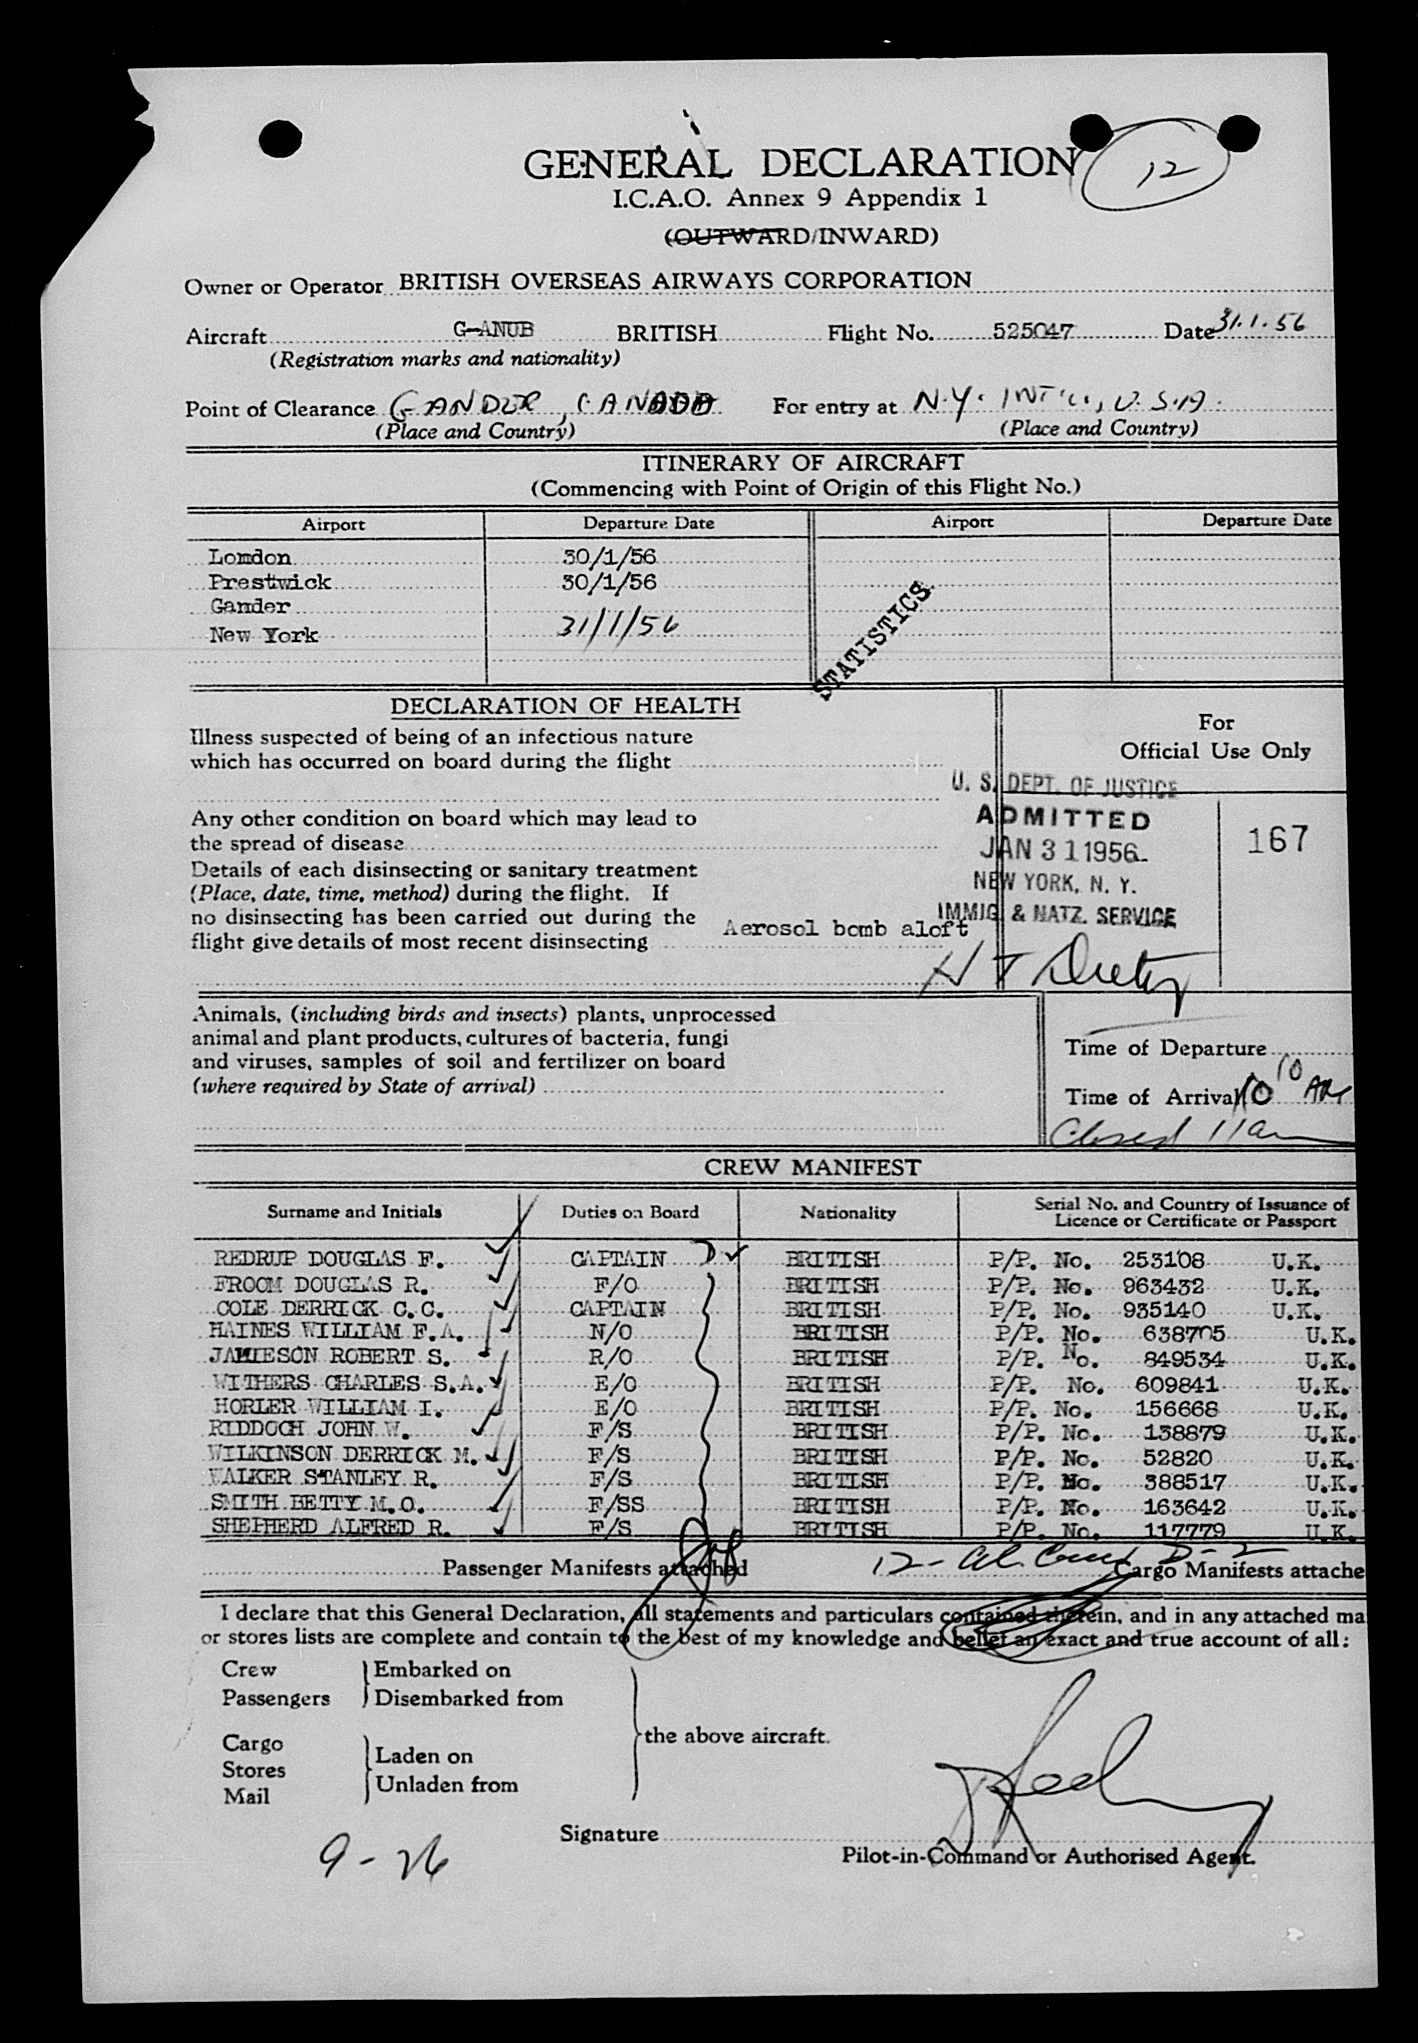 12
GENERAL DECLARATION
I.C.A.O. Annex 9 Appendix 1
(OUTWARD/INWARD)
Owner or Operator BRITISH OVERSEAS AIRWAYS CORPORATION
Aircraft G-ANUB BRITISH Flight No. 525047 Date 31.1.56
(Registration marks and nationality)
Point of Clearance GANDER, CANADA For entry at N.Y. INT'L., U.S.A.
(Place and Country) (Place and Country)
ITINERARY OF AIRCRAFT
(Commencing with Point of Origin of this Flight No.)
Airport Departure Date Airport Departure Date
London 30/1/56
Prestwick 30/1/56
Gander
New York 31/1/56
STATISTICS
DECLARATION OF HEALTH
Illness suspected of being of an infectious nature
which has occurred on board during the flight
For
Official Use Only
Any other condition on board which may lead to
the spread of disease
Details of each disinsecting or sanitary treatment
(Place, date, time, method) during the flight. If
no disinsecting has been carried out during the
flight give details of most recent disinsecting
Aerosol bomb aloft
U. S. DEPT. OF JUSTICE
ADMITTED
JAN 31 1956
NEW YORK, N. Y.
IMMIG. & NATZ. SERVICE
167
Animals, (including birds and insects) plants, unprocessed
animal and plant products, cultures of bacteria, fungi
and viruses, samples of soil and fertilizer on board
(where required by State of arrival)
Time of Departure
Time of Arrival 10 10 AM
Closed 11am
CREW MANIFEST
Surname and Initials Duties on Board Nationality Serial No. and Country of Issuance of
Licence or Certificate or Passport
REDRUP DOUGLAS F. CAPTAIN D BRITISH P/P. No. 253108 U.K.
FROOM DOUGLAS R. F/O BRITISH P/P. No. 963432 U.K.
COLE DERRICK C.C. CAPTAIN BRITISH P/P. No. 935140 U.K.
HAINES WILLIAM F.A. N/O BRITISH P/P. No. 638705 U.K.
JAMIESON ROBERT S. R/O BRITISH P/P. No. 849534 U.K.
WITHERS CHARLES S.A. E/O BRITISH P/P. No. 609841 U.K.
HORLER WILLIAM I. E/O BRITISH P/P. No. 156668 U.K.
RIDDOCH JOHN W. F/S BRITISH P/P. No. 138879 U.K.
WILKINSON DERRICK M. F/S BRITISH P/P. No. 52820 U.K.
WALKER STANLEY R. F/S BRITISH P/P. No. 388517 U.K.
SMITH BETTY M.O. F/SS BRITISH P/P. No. 163642 U.K.
SHEPHERD ALFRED R. F/S BRITISH P/P. No. 117779 U.K.
Passenger Manifests attached 12- D-2 Cargo Manifests attache
I declare that this General Declaration, all statements and particulars contained therein, and in any attached ma
or stores lists are complete and contain to the best of my knowledge and belief an exact and true account of all:
Crew Embarked on
Passengers Disembarked from
the above aircraft.
Cargo
Stores Laden on
Mail Unladen from
Signature
Pilot-in-Command or Authorised Agent.
9-26